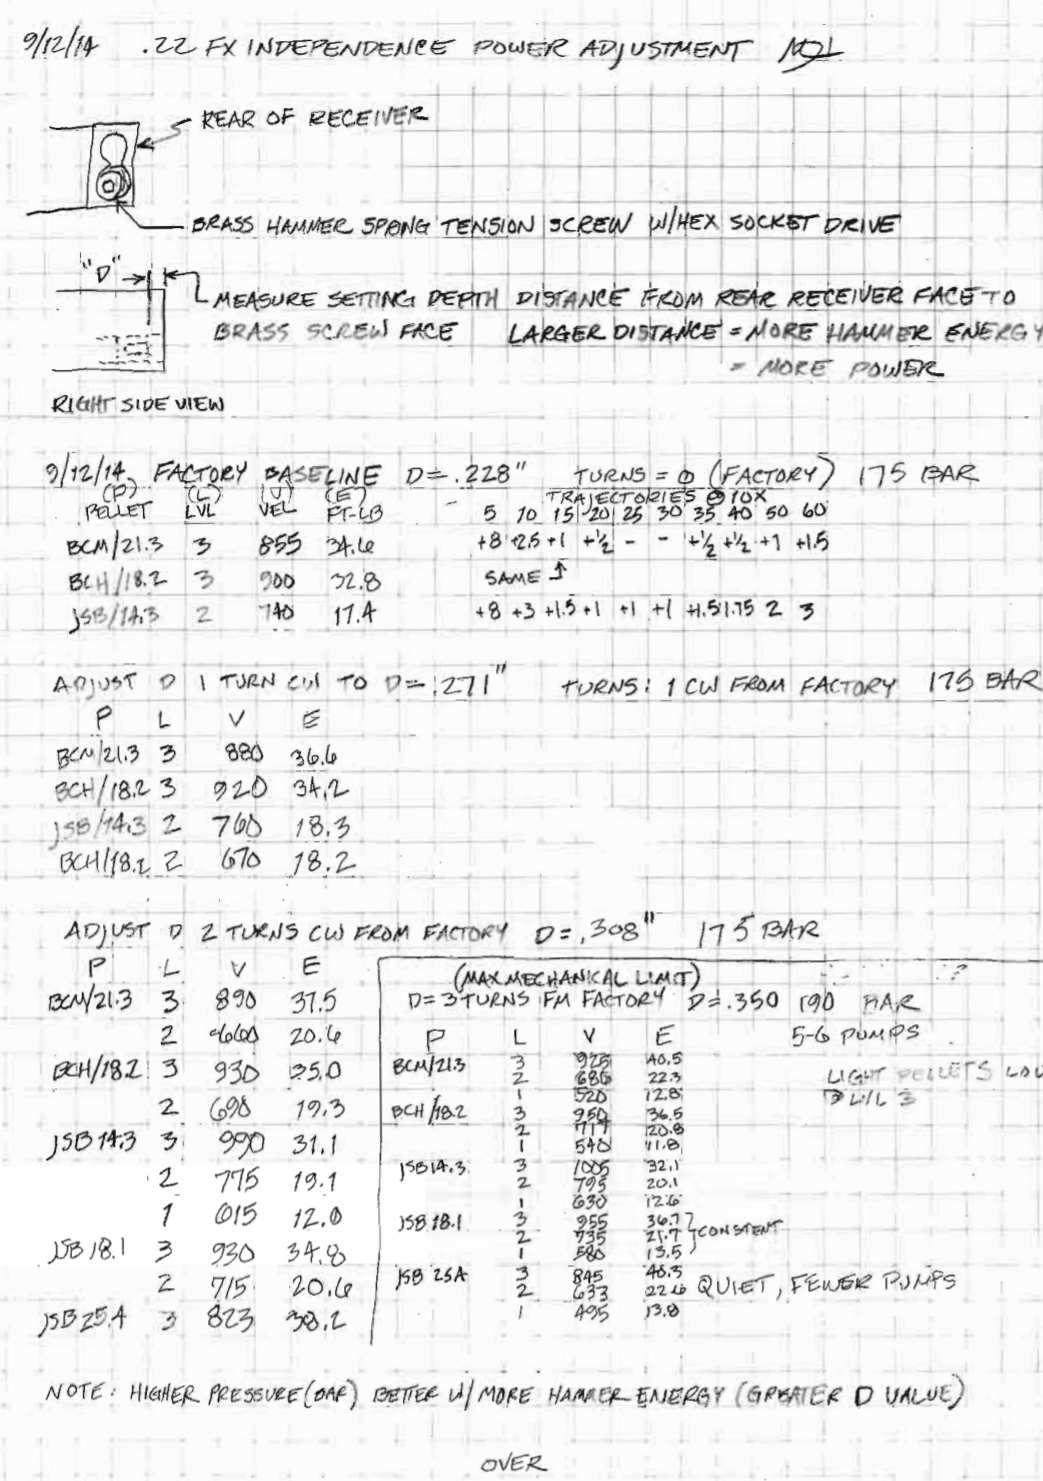 9/12/14 .22 FX INDEPENDENCE POWER ADJUSTMENT
REAR OF RECEIVER
BRASS HAMMER SPRING TENSION SCREW W/HEX SOCKET DRIVE
"D"
MEASURE SETTING DEPTH DISTANCE FROM REAR RECEIVER FACE TO
BRASS SCREW FACE LARGER DISTANCE = MORE HAMMER ENERGY
= MORE POWER
RIGHT SIDE VIEW
9/12/14 FACTORY BASELINE D=.228" TURNS = 0 (FACTORY) 175 BAR
(P) (L) (V) (E) TRAJECTORIES @ 10X
PELLET LVL VEL FT-LB 5 10 15 20 25 30 35 40 50 60
BCM/21.3 3 855 34.6 +8 +2.5 +1 +½ - - +½ +½ +1 +1.5
BCH/18.2 3 900 32.8 SAME ↑
JSB/14.3 2 740 17.4 +8 +3 +1.5 +1 +1 +1 +1.5 1.75 2 3
ADJUST D 1 TURN CW TO D=.271" TURNS: 1 CW FROM FACTORY 175 BAR
P L V E
BCM/21.3 3 880 36.6
BCH/18.2 3 920 34.2
JSB/14.3 2 760 18.3
BCH/18.2 2 670 18.2
ADJUST D 2 TURNS CW FROM FACTORY D=.308" 175 BAR
P L V E
BCM/21.3 3 890 37.5
2 660 20.6
BCH/18.2 3 930 35.0
2 690 19.3
JSB 14.3 3 990 31.1
2 775 19.1
1 615 12.0
JSB 18.1 3 930 34.8
2 715 20.6
JSB 25.4 3 823 38.2
(MAX MECHANICAL LIMIT)
D=3 TURNS FM FACTORY D=.350 190 BAR
P L V E 5-6 PUMPS
BCM/21.3 3 925 40.5
2 686 22.3
1 520 12.8
LIGHT PELLETS LOU
LVL 3
BCH/18.2 3 950 36.5
2 717 20.8
1 540 11.8
JSB 14.3 3 1005 32.1
2 795 20.1
1 630 12.6
JSB 18.1 3 955 36.7
2 735 21.7 CONSTENT
1 580 13.5
JSB 25.4 3 845 40.3
2 633 22.6 QUIET, FEWER PUMPS
1 495 13.8
NOTE: HIGHER PRESSURE (BAR) BETTER W/ MORE HAMMER ENERGY (GREATER D VALUE)
OVER